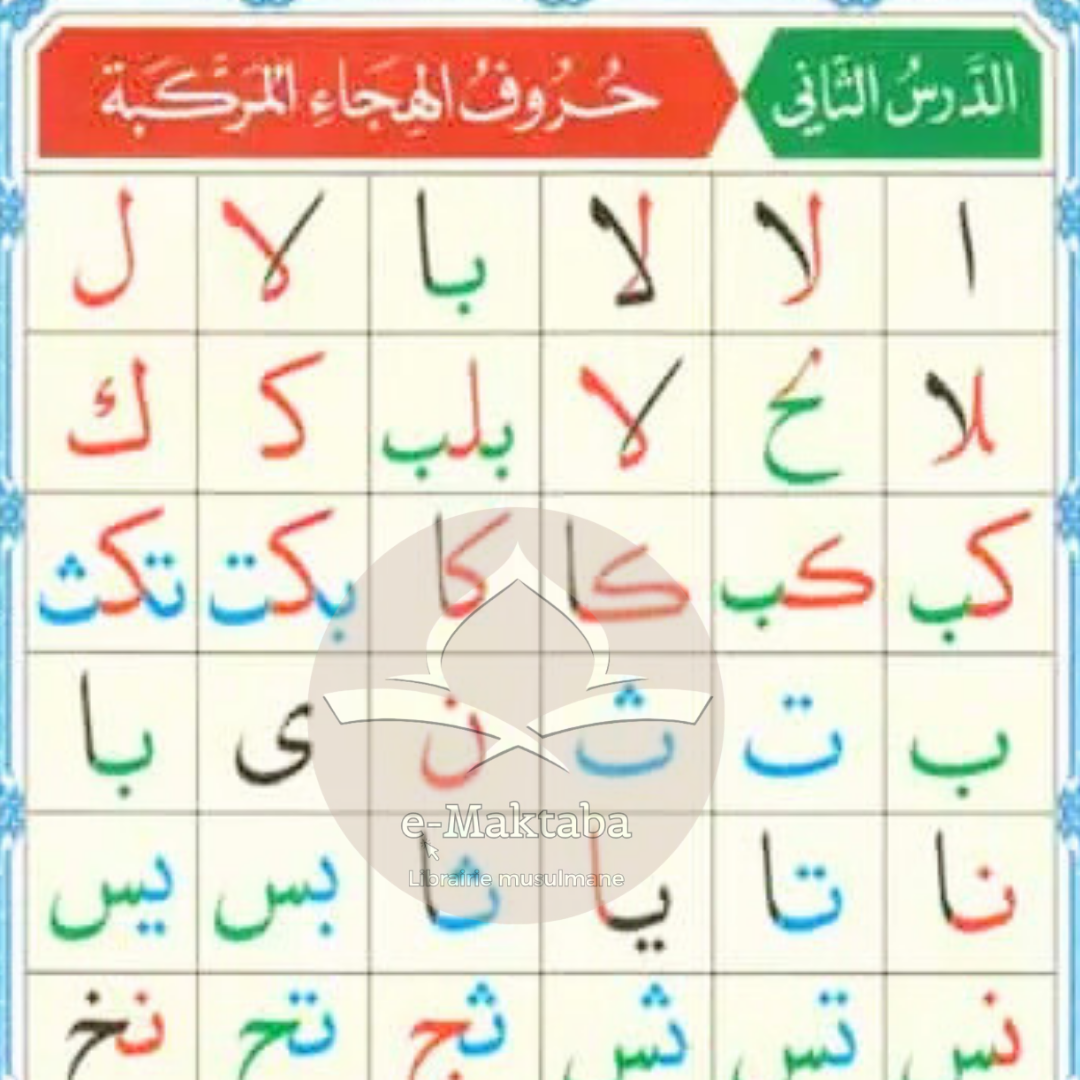 الدَّرسُ الثَّانِي حُرُوفُ الهِجَاءِ المُرَكَّبَة
ا لا لا با لا ل
لا نح لا بلب ک ك
كب كب كا كا بكت تكث
ب ت ث ن ى با
نا تا يا ثا بس يس
نس تس ثس ثج تح نخ
e-Maktaba
Librairie musulmane